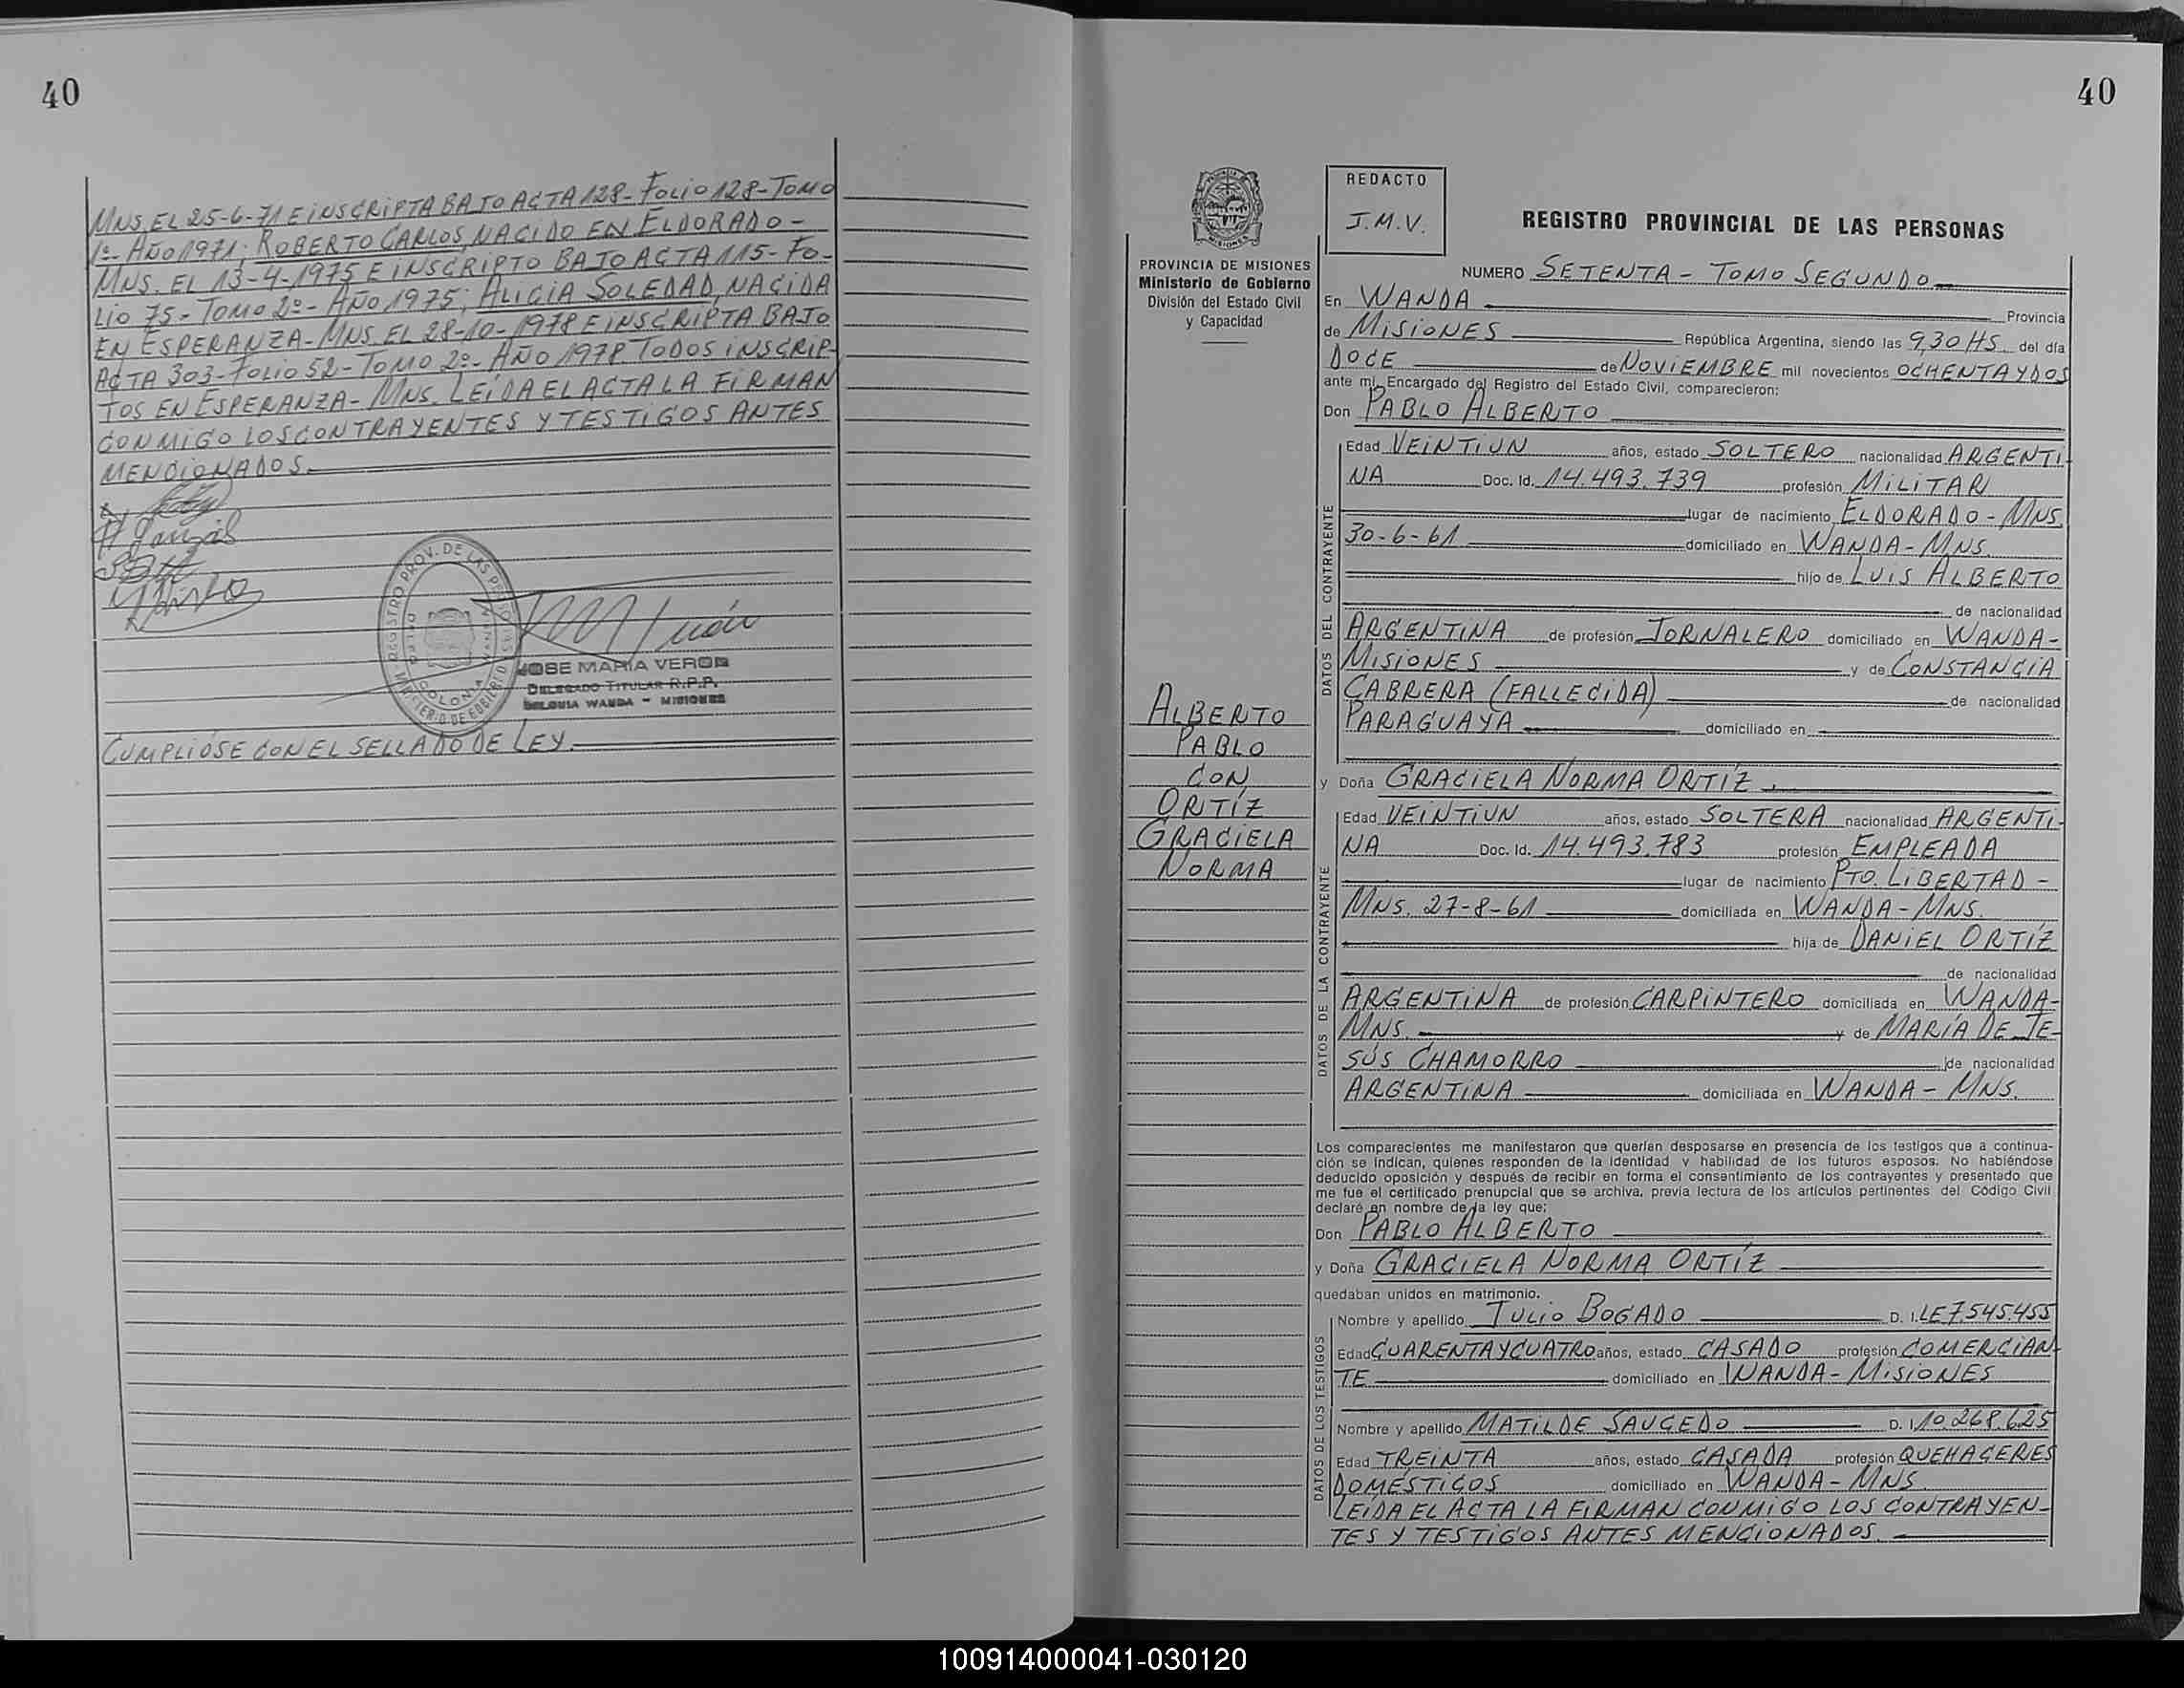 40
MNS. EL 25-6-71 E INSCRIPTA BAJO ACTA 128- FOLIO 128- TOMO
1º- AÑO 1971; ROBERTO CARLOS, NACIDO EN ELDORADO-
MNS. EL 13-4-1975 E INSCRIPTO BAJO ACTA 115- FO-
LIO 75- TOMO 2º- AÑO 1975; ALICIA SOLEDAD, NACIDA
EN ESPERANZA- MNS. EL 28-10-1978 E INSCRIPTA BAJO
ACTA 303- FOLIO 52- TOMO 2º- AÑO 1978. TODOS INSCRIP-
TOS EN ESPERANZA- MNS. LEÍDA EL ACTA LA FIRMAN
CONMIGO LOS CONTRAYENTES Y TESTIGOS ANTES
MENCIONADOS.
REGISTRO PROV. DE LAS PERSONAS
MINISTERIO DE GOBIERNO
COLONIA WANDA
JOSE MARIA VERON
DELEGADO TITULAR R.P.P.
COLONIA WANDA - MISIONES
CUMPLIÓSE CON EL SELLADO DE LEY.
40
PROVINCIA DE MISIONES
Ministerio de Gobierno
División del Estado Civil
y Capacidad
REDACTO
J.M.V.
REGISTRO PROVINCIAL DE LAS PERSONAS
NUMERO SETENTA - TOMO SEGUNDO
En WANDA Provincia
de MISIONES República Argentina, siendo las 9,30 HS. del día
DOCE de NOVIEMBRE mil novecientos OCHENTA Y DOS
ante mí, Encargado del Registro del Estado Civil, comparecieron:
Don PABLO ALBERTO
DATOS DEL CONTRAYENTE
Edad VEINTIUN años, estado SOLTERO nacionalidad ARGENTI-
NA Doc. Id. 14.493.739 profesión MILITAR
lugar de nacimiento ELDORADO - MNS
30-6-61 domiciliado en WANDA - MNS.
hijo de LUIS ALBERTO
de nacionalidad
ARGENTINA de profesión JORNALERO domiciliado en WANDA-
MISIONES y de CONSTANCIA
CABRERA (FALLECIDA) de nacionalidad
PARAGUAYA domiciliado en
ALBERTO
PABLO
CON
ORTÍZ
GRACIELA
NORMA
y Doña GRACIELA NORMA ORTÍZ
DATOS DE LA CONTRAYENTE
Edad VEINTIUN años, estado SOLTERA nacionalidad ARGENTI-
NA Doc. Id. 14.493.783 profesión EMPLEADA
lugar de nacimiento PTO. LIBERTAD -
MNS. 27-8-61 domiciliada en WANDA - MNS.
hija de DANIEL ORTÍZ
de nacionalidad
ARGENTINA de profesión CARPINTERO domiciliada en WANDA-
MNS. y de MARÍA DE JE-
SÚS CHAMORRO de nacionalidad
ARGENTINA domiciliada en WANDA - MNS.
Los comparecientes me manifestaron que querían desposarse en presencia de los testigos que a continua-
ción se indican, quienes responden de la identidad y habilidad de los futuros esposos. No habiéndose
deducido oposición y después de recibir en forma el consentimiento de los contrayentes y presentado que
me fue el certificado prenupcial que se archiva, previa lectura de los artículos pertinentes del Código Civil
declaré en nombre de la ley que:
Don PABLO ALBERTO
y Doña GRACIELA NORMA ORTÍZ
quedaban unidos en matrimonio.
DATOS DE LOS TESTIGOS
Nombre y apellido JULIO BOGADO D. I. LE 7.545.455
Edad CUARENTA Y CUATRO años, estado CASADO profesión COMERCIAN-
TE domiciliado en WANDA - MISIONES
Nombre y apellido MATILDE SAUCEDO D. I. 10.268.625
Edad TREINTA años, estado CASADA profesión QUEHACERES
DOMÉSTICOS domiciliado en WANDA - MNS.
LEÍDA EL ACTA LA FIRMAN CONMIGO LOS CONTRAYEN-
TES Y TESTIGOS ANTES MENCIONADOS.
100914000041-030120